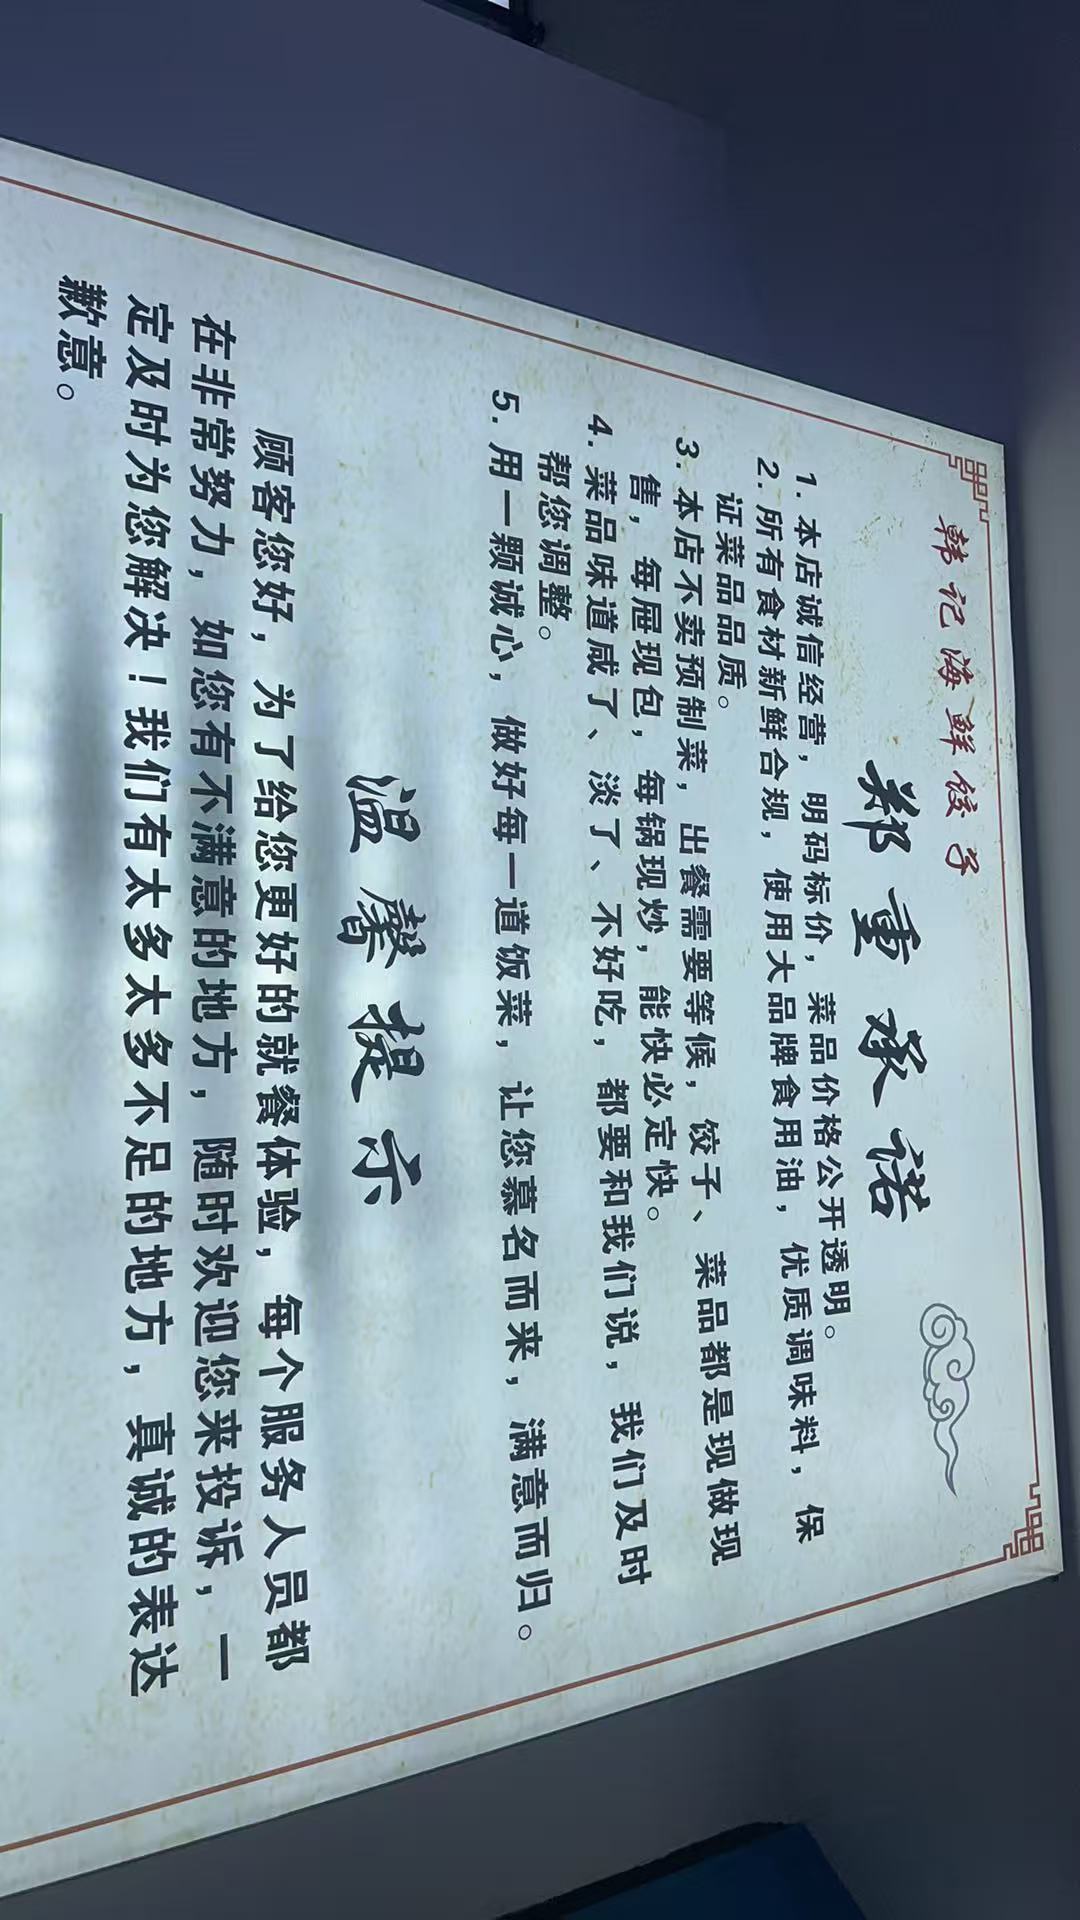 韩记海鲜饺子
郑重承诺
1.本店诚信经营，明码标价，菜品价格公开透明。
2.所有食材新鲜合规，使用大品牌食用油，优质调味料，保
证菜品品质。
3.本店不卖预制菜，出餐需要等候，饺子、菜品都是现做现
售，每屉现包，每锅现炒，能快必定快。
4.菜品味道咸了、淡了、不好吃，都要和我们说，我们及时
帮您调整。
5.用一颗诚心，做好每一道饭菜，让您慕名而来，满意而归。
温馨提示
顾客您好，为了给您更好的就餐体验，每个服务人员都
在非常努力，如您有不满意的地方，随时欢迎您来投诉，一
定及时为您解决！我们有太多太多不足的地方，真诚的表达
歉意。